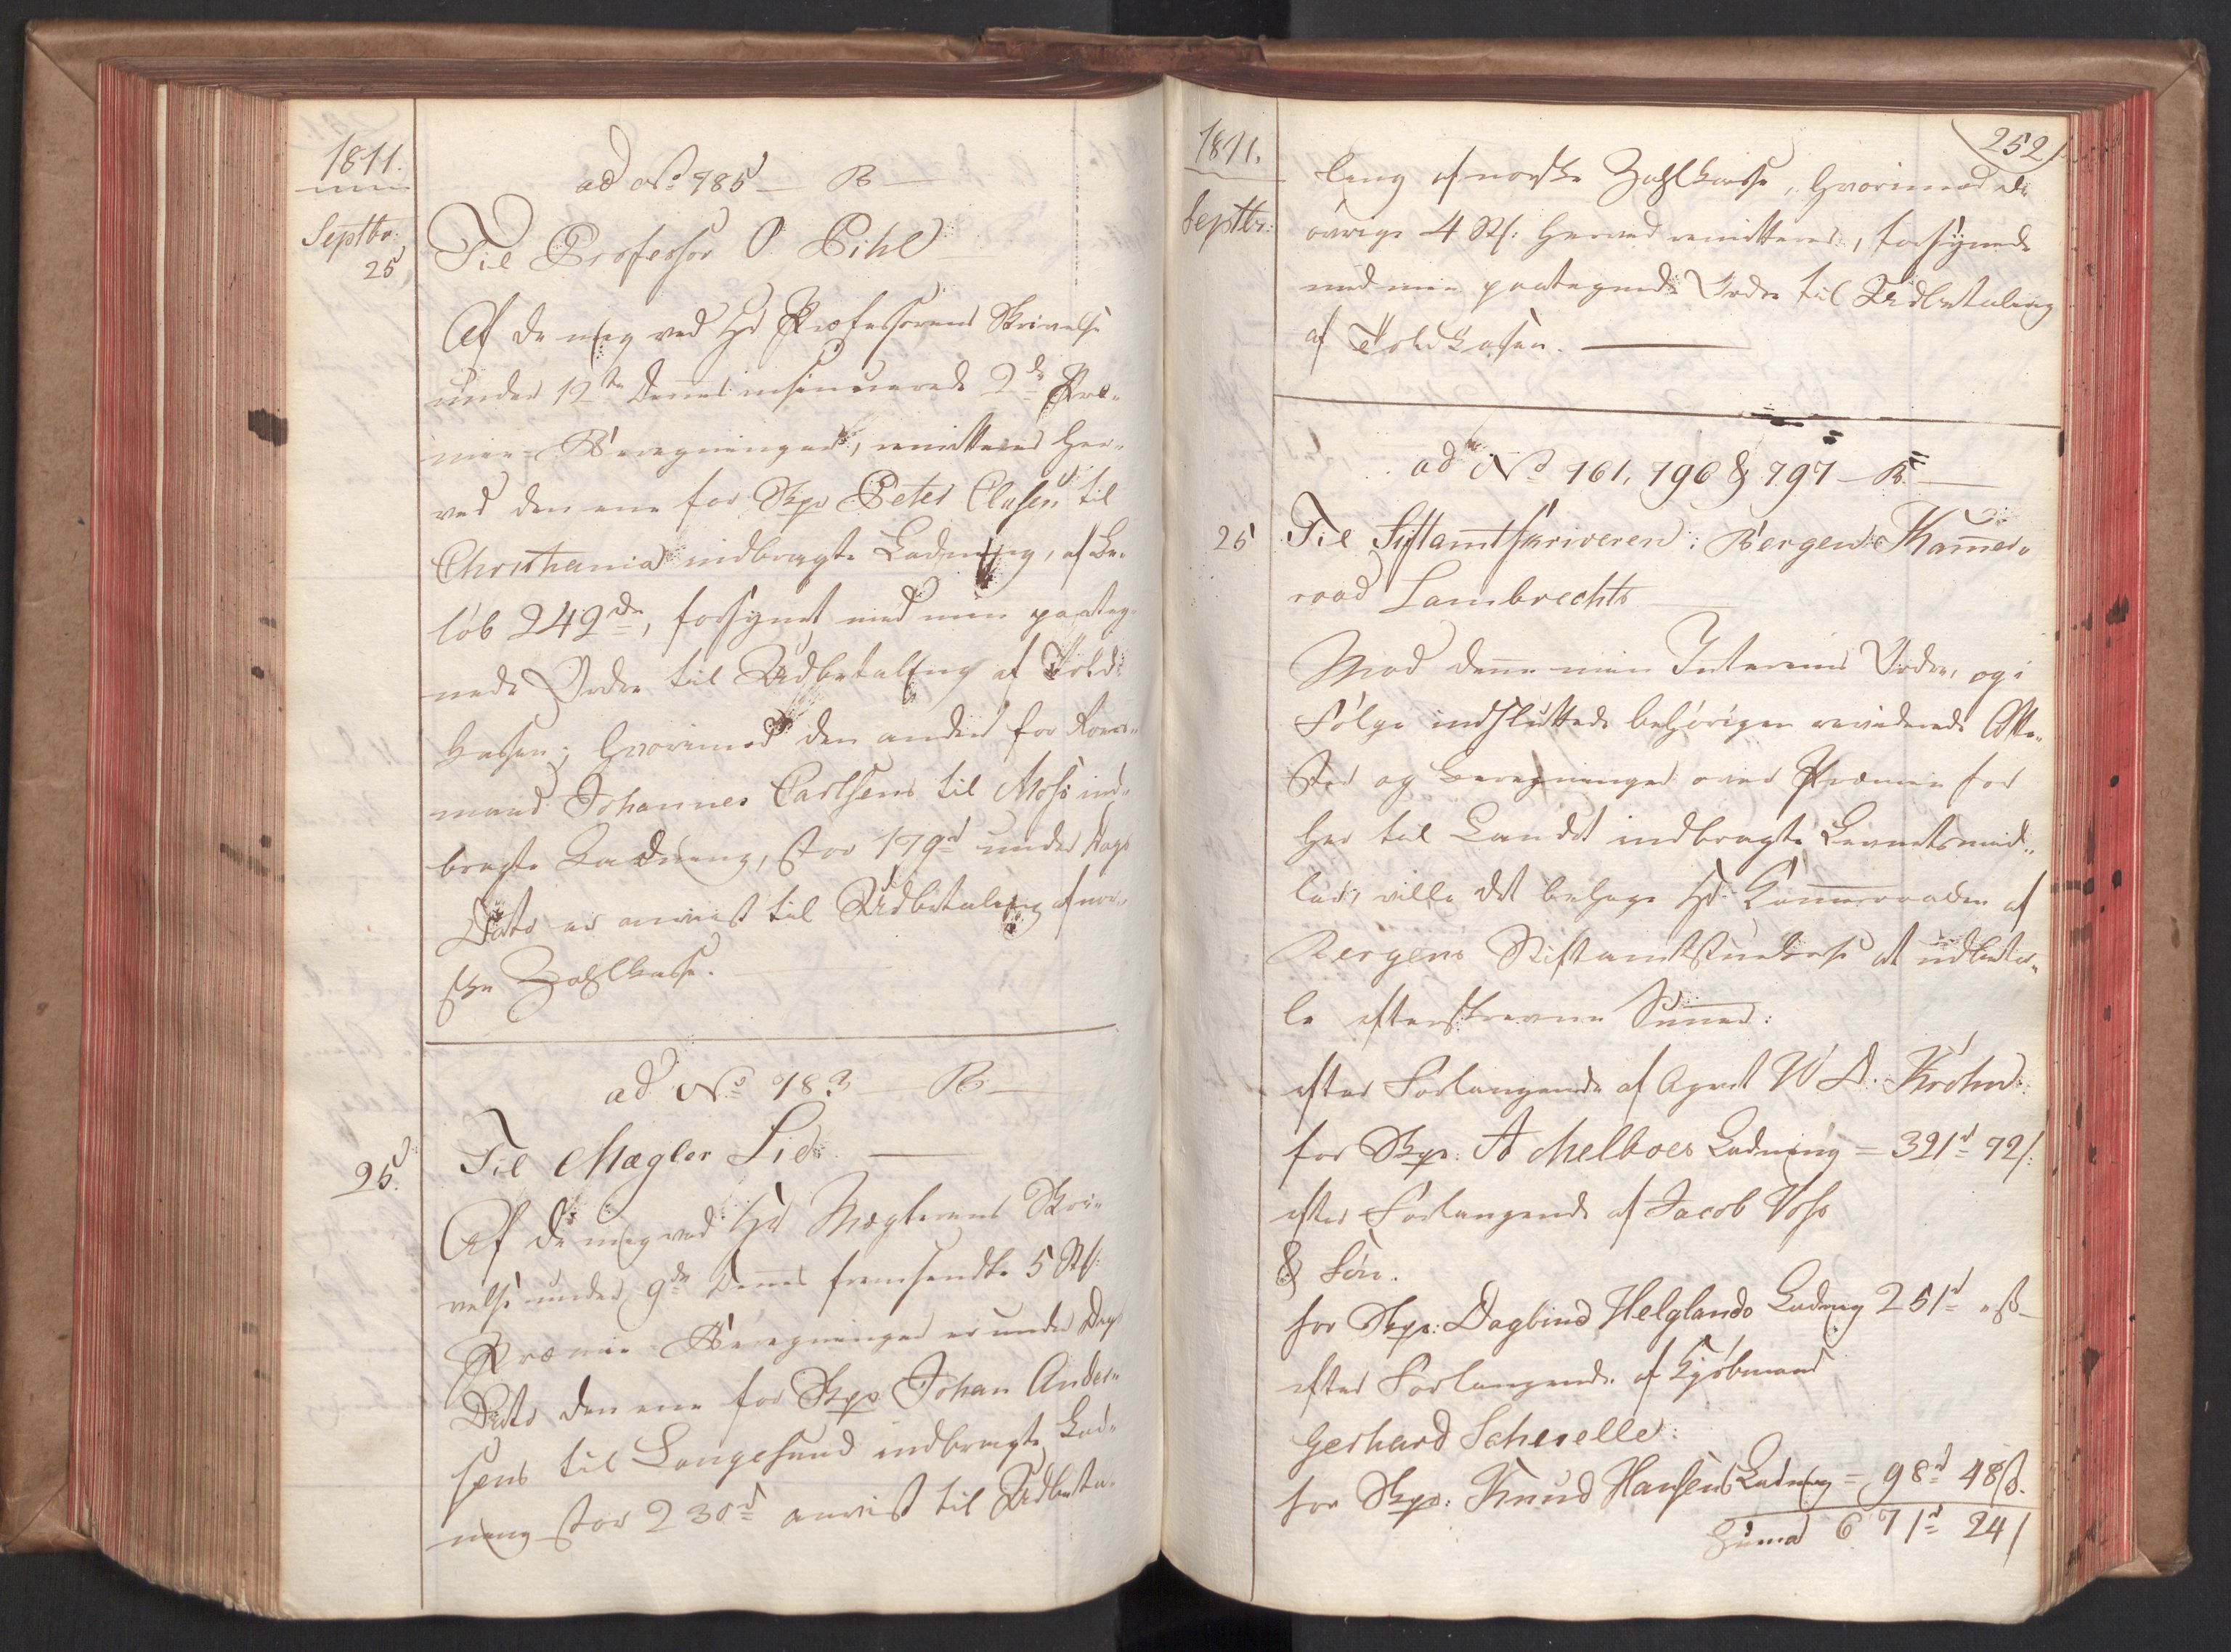 1811.
Septbr:
25
ad No 785 — B —
Til Professor O. Pihl
Af de mig ved Hr Professorens Skrivelse
under 12te dennes insinuerede 2de Præ-
mie-Beregninger, remitteres her-
ved den ene for Skpr Peter Clasens til
Christiania indbragte Ladning, af Be-
löb 242rd, forsynet med min paateg-
nede Ordre til Udbetaling af Told-
kassen; hvorimod den anden for
mand Johannes Carlsens til Moss ind-
bragte Ladning, stor 179rd under Dags
Dato er anvist til Udbetaling af nor-
ske Zahlkasse.
ad No 783 — B —
25.
Til Mægler Lie —
Af de mig ved Hr Mæglerens Skri-
velse under 9de dennes fremsendte 5 Stk:
Præmie-Beregninger er under Dags
Dato den ene for Skpr Johan Ander-
sens til Langesund indbragte Lad-
ning stor 230rd anvist til Udbeta-
252
1811.
Septbr:
ling af norske Zahlkasse, hvorimod de
övrige 4 Stk: herved remitteres, forsynede
med min paategnede Ordre til Udbetaling
af Toldkassen. —
ad No 161, 796 & 797 — B. —
25
Til Stiftamtskriveren i Bergen Kammer-
raad Lambrechts
Mod denne min Interims Ordre, og i
Fölge indsluttede behörigen reviderede Atte-
ster og Beregninger over Præmie for
her til Landet indbragte Levnetsmid-
ler, ville det behage Hr Kammerraaden af
Bergens Stiftamtstuekasse at udbeta-
le efterskrevne Summer:
efter Forlangende af Agent W D. Krohn:
for Skpr: A Melboes Ladning = 321rd 72s:
efter Forlangende af Jacob Voss
& Sön.
for Skpr: Dagfind Helglands Ladning 251rd " s
efter Forlangende af Kjöbmand
Gerhard Scherelle:
for Skpr: Knud Hansens Ladning = 98rd 48s.
Summa 671rd 24s